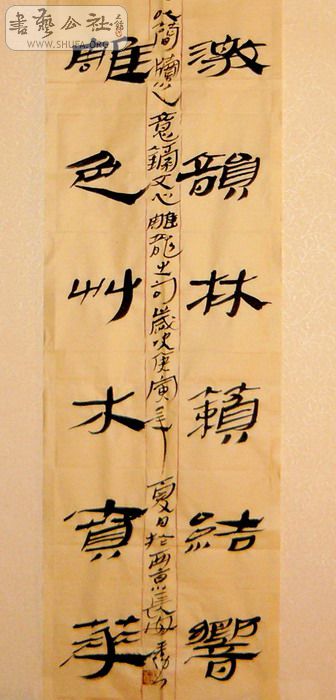 激韻林籟結響
以簡牘之意文心雕龍之句歲次庚寅年夏日於西京長安
雕色艸木賁華
書藝公社
WWW.SHUFA.ORG